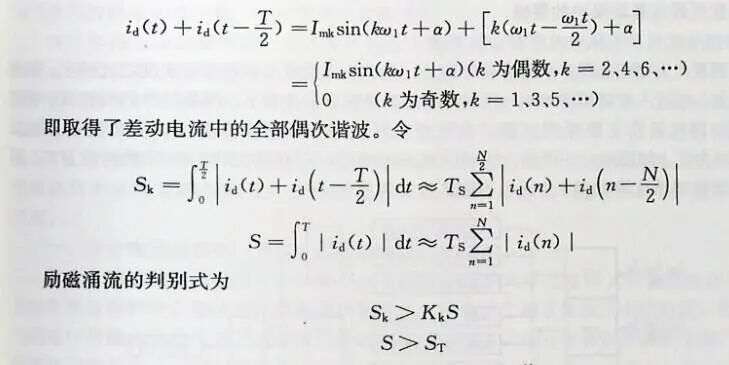 i_d(t) + i_d(t - T/2) = I_mk sin(kω₁t + α) + [k(ω₁t - ω₁t/2) + α]
= { I_mk sin(kω₁t + α) (k 为偶数, k = 2、4、6、…)
0 (k 为奇数, k = 1、3、5、…)
即取得了差动电流中的全部偶次谐波。令
S_k = ∫_0^{T/2} | i_d(t) + i_d(t - T/2) | dt ≈ T_S ∑_{n=1}^{N/2} | i_d(n) + i_d(n - N/2) |
S = ∫_0^T | i_d(t) | dt ≈ T_S ∑_{n=1}^{N} | i_d(n) |
励磁涌流的判别式为
S_k > K_k S
S > S_T